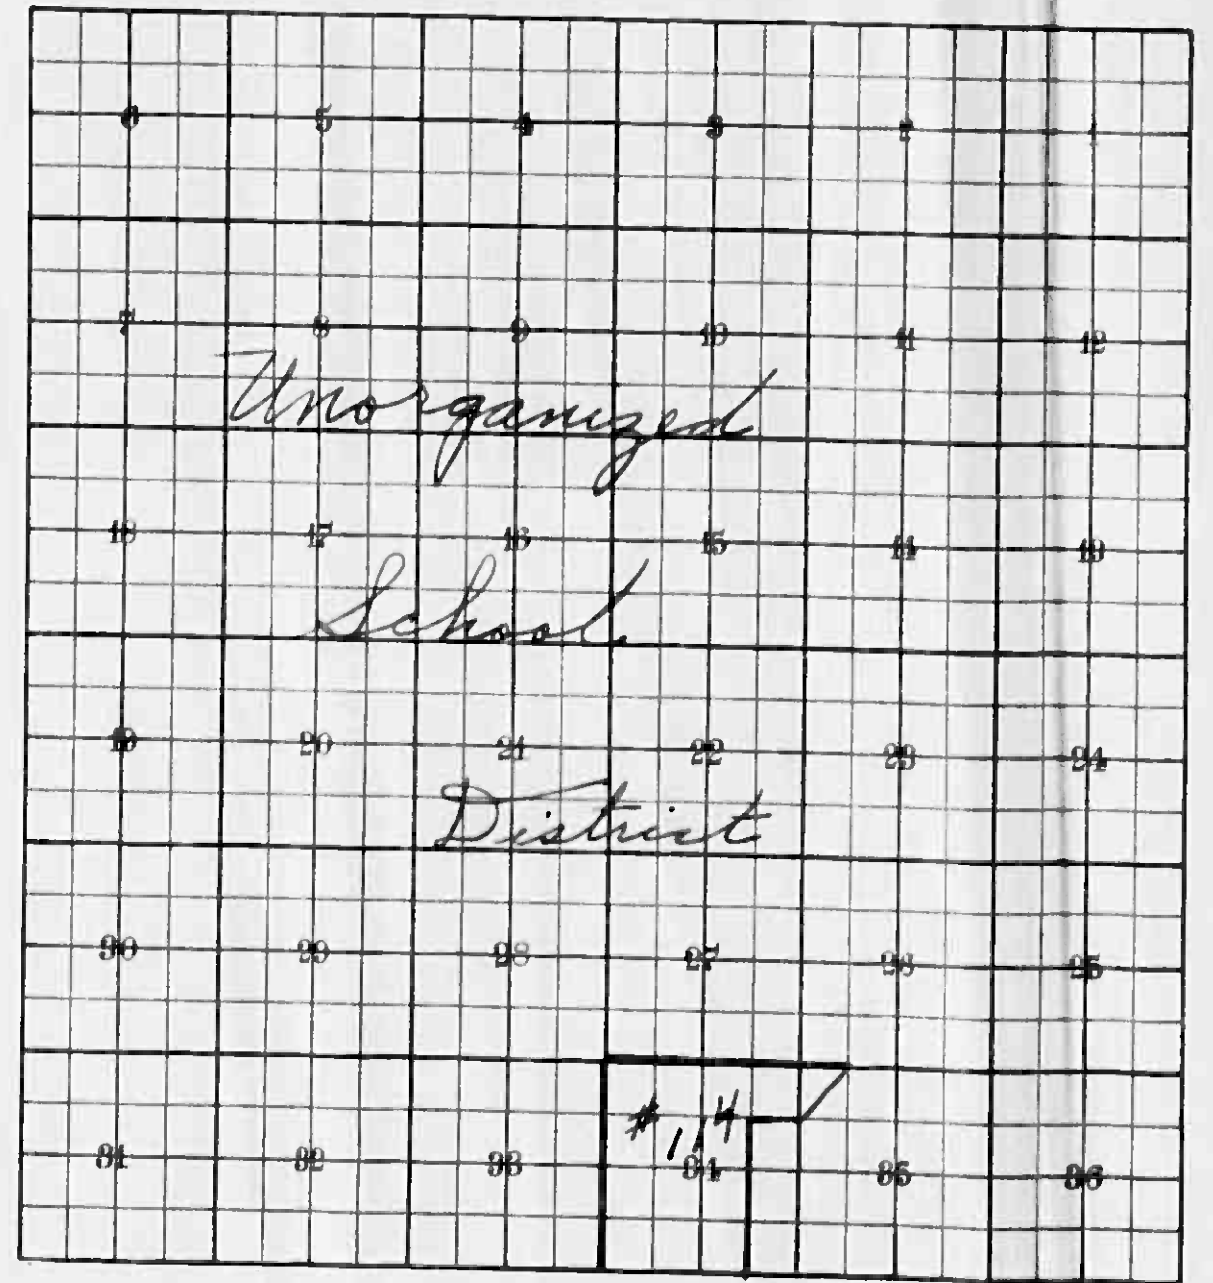 6 5 4 3 2 1
7 8 9 10 11 12
Unorganized
18 17 16 15 14 13
School
19 20 21 22 23 24
District
30 29 28 27 26 25
#114
31 32 33 34 35 36